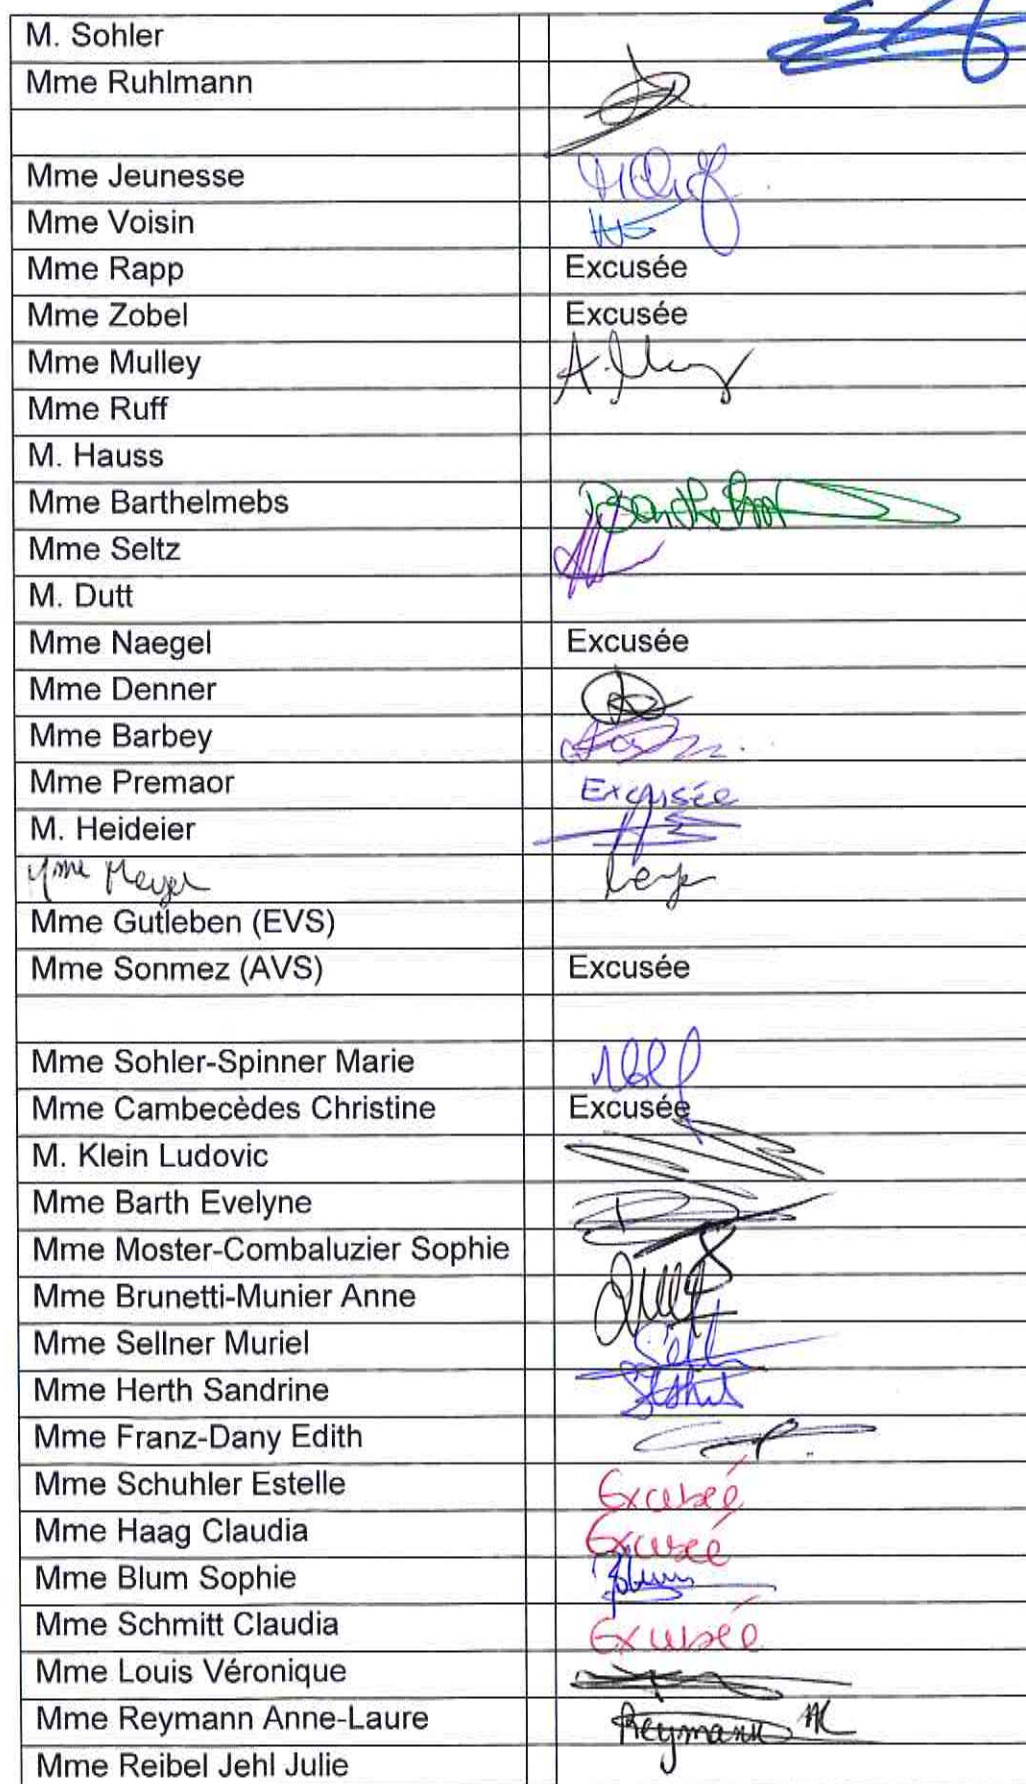 M. Sohler
Mme Ruhlmann
Mme Jeunesse
Mme Voisin
Mme Rapp Excusée
Mme Zobel Excusée
Mme Mulley
Mme Ruff
M. Hauss
Mme Barthelmebs
Mme Seltz
M. Dutt
Mme Naegel Excusée
Mme Denner
Mme Barbey
Mme Premaor Excusée
M. Heideier
Mme Meyer
Mme Gutleben (EVS)
Mme Sonmez (AVS) Excusée
Mme Sohler-Spinner Marie
Mme Cambecèdes Christine Excusée
M. Klein Ludovic
Mme Barth Evelyne
Mme Moster-Combaluzier Sophie
Mme Brunetti-Munier Anne
Mme Sellner Muriel
Mme Herth Sandrine
Mme Franz-Dany Edith
Mme Schuhler Estelle Excusée
Mme Haag Claudia Excusée
Mme Blum Sophie Blum
Mme Schmitt Claudia Excusée
Mme Louis Véronique
Mme Reymann Anne-Laure Reymann
Mme Reibel Jehl Julie